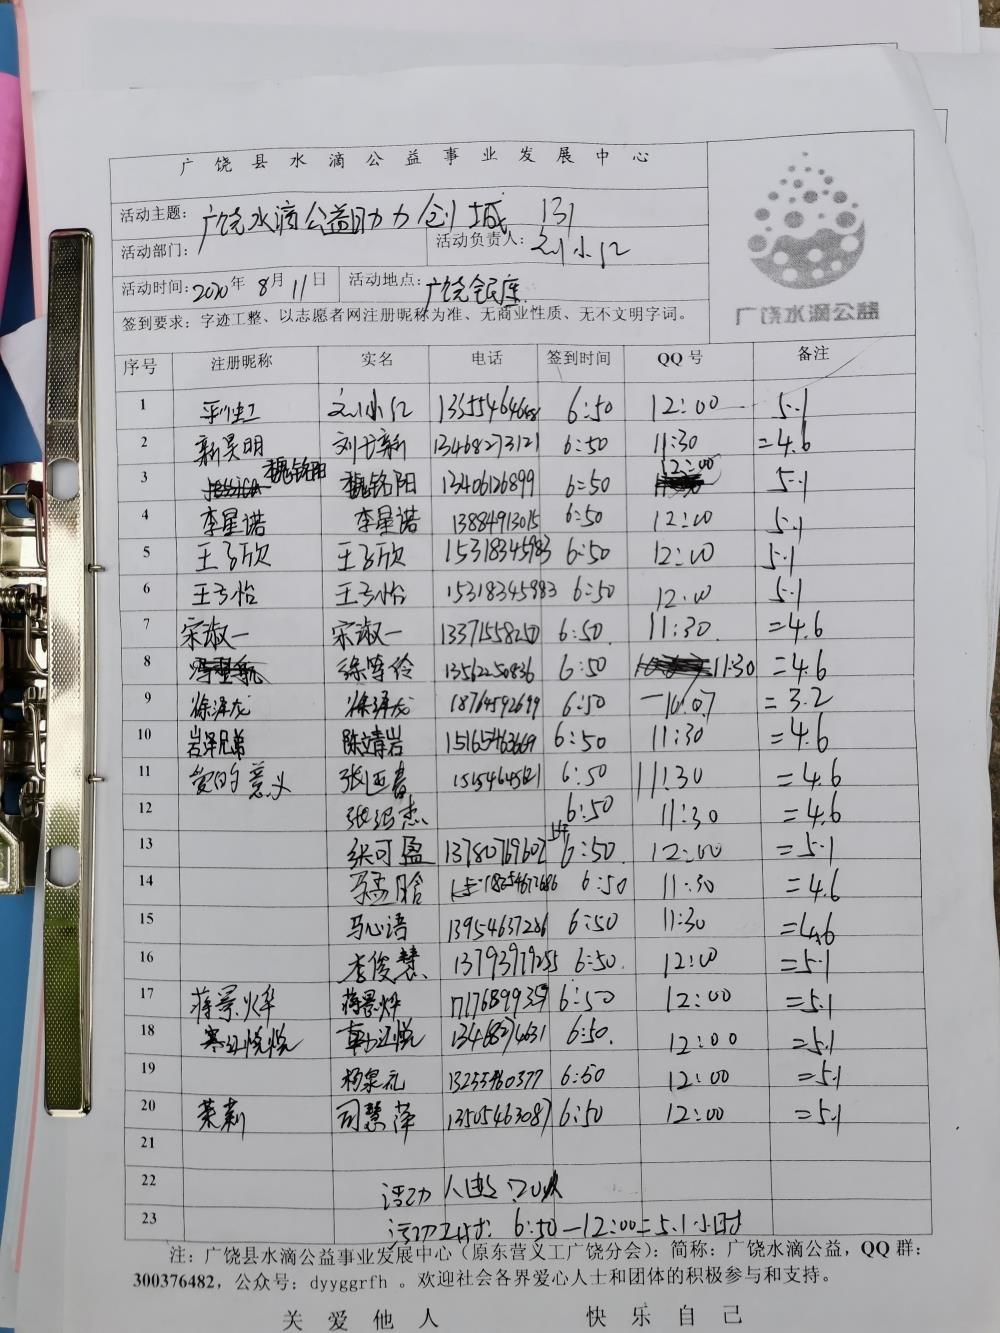 广饶县水滴公益事业发展中心
活动主题：广饶水滴公益助力创城 131
活动部门： 活动负责人：刘小红
活动时间：2020年8月11日 活动地点：广饶银座
签到要求：字迹工整、以志愿者网注册昵称为准、无商业性质、无不文明字词。
广饶水滴公益
序号 注册昵称 实名 电话 签到时间 QQ号 备注
1 刘小红 6:50 12:00 5.1
2 新昊明 刘于新 13468273121 6:50 11:30 =4.6
3 魏铭阳 魏铭阳 13406126899 6:50 12:00 5.1
4 李星诺 李星诺 13884913015 6:50 12:00 5.1
5 王子欣 王子欣 15318345983 6:50 12:00 5.1
6 王子怡 王子怡 15318345983 6:50 12:00 5.1
7 宋淑一 宋淑一 13371558250 6:50 11:30 =4.6
8 13562250836 6:50 11:30 =4.6
9 徐泽龙 徐泽龙 18764592699 6:50 —10:07 =3.2
10 岩泽兄弟 陈靖岩 6:50 11:30 =4.6
11 爱的意义 6:50 11:30 =4.6
12 6:50 11:30 =4.6
13 张可盈 6:50 12:00 =5.1
14 孟晗 18254672686 6:50 11:30 =4.6
15 马心语 13954637286 6:50 11:30 =4.6
16 李俊慧 13793979255 6:50 12:00 =5.1
17 蒋景烨 蒋景烨 6:50 12:00 =5.1
18 13468274631 6:50 12:00 =5.1
19 杨泉元 6:50 12:00 =5.1
20 茉莉 司慧萍 13505463087 6:50 12:00 =5.1
21
22 活动人数：20人
23 活动工时：6:50—12:00=5.1小时
注：广饶县水滴公益事业发展中心（原东营义工广饶分会）：简称：广饶水滴公益，QQ群：
300376482，公众号：dyyggrfh 。欢迎社会各界爱心人士和团体的积极参与和支持。
关爱他人 快乐自己